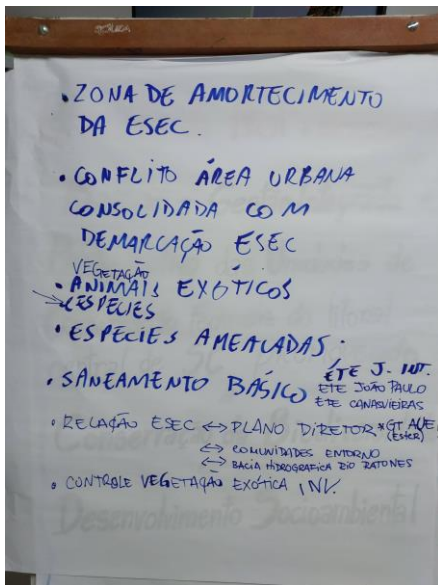 • ZONA DE AMORTECIMENTO
DA ESEC.
• CONFLITO ÁREA URBANA
CONSOLIDADA COM
DEMARCAÇÃO ESEC
VEGETAÇÃO
• ANIMAIS EXÓTICOS
ESPÉCIES
• ESPÉCIES AMEAÇADAS.
• SANEAMENTO BÁSICO
ETE J. INT.
ETE JOÃO PAULO
ETE CANASVIEIRAS
• RELAÇÃO ESEC ↔ PLANO DIRETOR *GT AUE
(ESEC)
↔ COMUNIDADES ENTORNO
↔ BACIA HIDROGRAFICA RIO RATONES
• CONTROLE VEGETAÇÃO EXÓTICA INV.
Desenvolvimento Socioambiental